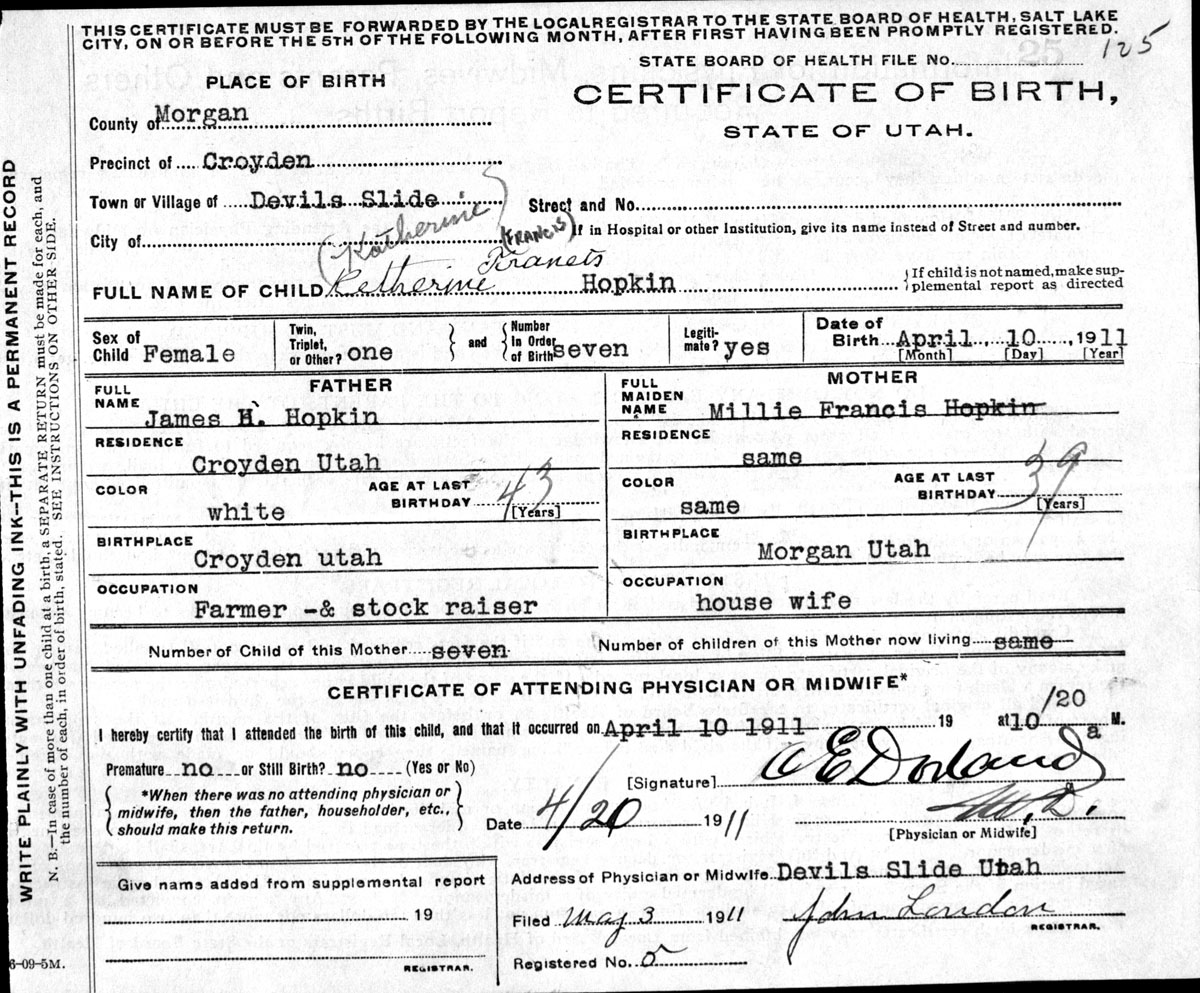 THIS CERTIFICATE MUST BE FORWARDED BY THE LOCAL REGISTRAR TO THE STATE BOARD OF HEALTH, SALT LAKE
CITY, ON OR BEFORE THE 5TH OF THE FOLLOWING MONTH, AFTER FIRST HAVING BEEN PROMPTLY REGISTERED.
125
STATE BOARD OF HEALTH FILE No. 25
PLACE OF BIRTH
CERTIFICATE OF BIRTH,
STATE OF UTAH.
County of Morgan
Precinct of Croyden
Town or Village of Devils Slide
Street and No.
City of
(Katherine (FRANCIS)
If in Hospital or other Institution, give its name instead of Street and number.
FULL NAME OF CHILD Ketherine Francis Hopkin
{If child is not named, make sup-
plemental report as directed
Sex of Child Female
Twin, Triplet, or Other? one
and
Number In Order of Birth seven
Legiti-mate? yes
Date of Birth April 10, 1911
[Month] [Day] [Year]
FATHER
MOTHER
FULL NAME James H. Hopkin
FULL MAIDEN NAME Millie Francis Hopkin
RESIDENCE
Croyden Utah
RESIDENCE
same
COLOR
white
AGE AT LAST BIRTHDAY 43 [Years]
COLOR
same
AGE AT LAST BIRTHDAY 39 [Years]
BIRTHPLACE
Croyden utah
BIRTHPLACE
Morgan Utah
OCCUPATION
Farmer -& stock raiser
OCCUPATION
house wife
Number of Child of this Mother seven
Number of children of this Mother now living same
CERTIFICATE OF ATTENDING PHYSICIAN OR MIDWIFE*
I hereby certify that I attended the birth of this child, and that it occurred on April 10 1911 19 at 10/20 a M.
Premature no or Still Birth? no (Yes or No)
[Signature] C E Dorland
*When there was no attending physician or
midwife, then the father, householder, etc.,
should make this return.
Date 4/20 1911
M.D.
[Physician or Midwife]
Give name added from supplemental report
19
REGISTRAR.
Address of Physician or Midwife Devils Slide Utah
Filed May 3 1911 John London
REGISTRAR.
Registered No. 5
6-09-5M.
WRITE PLAINLY WITH UNFADING INK--THIS IS A PERMANENT RECORD
N. B.--In case of more than one child at a birth, a SEPARATE RETURN must be made for each, and
the number of each, in order of birth, stated. SEE INSTRUCTIONS ON OTHER SIDE.